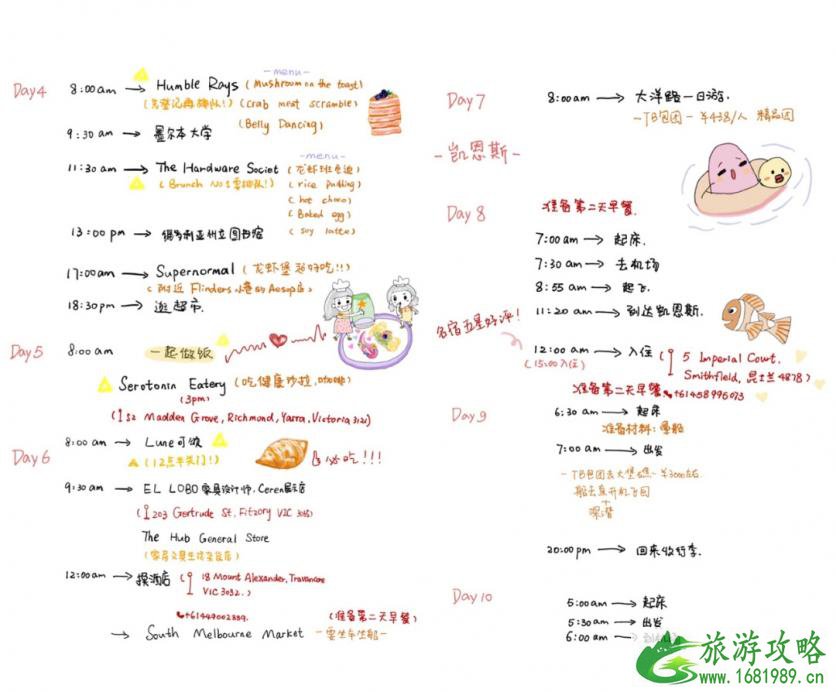 Day4
8:00am → Humble Rays
(先登记再排队!)
-menu-
(Mushroom on the toast)
(Crab meat scramble)
(Belly Dancing)
9:30am → 墨尔本大学
11:30am → The Hardware Societ
(Brunch No1要排队!)
-menu-
(龙虾班尼迪)
(rice pudding)
(hot choco)
(Baked egg)
(soy latte)
13:00pm → 维多利亚州立图书馆
17:00am → Supernormal (龙虾堡超好吃!!)
(附近 Flinders小巷的Aesop店)
18:30pm → 逛超市.
Day5
8:00am 一起做饭
Serotonin Eatery (吃健康沙拉,咖啡)
(3pm)
(52 Madden Grove, Richmond, Yarra, Victoria 3121)
Day6
8:00am → Lune可颂
(12点半关门!)
必吃!!!
9:30am → EL LOBO家具设计师, Ceren展示店
(203 Gertrude St, Fitzory VIC 3065)
The Hub General Store
12:00am →
(18 Mount Alexander, Travancore
VIC 3032.)
+61449002889.
(准备第二天早餐)
→ South Melbourne Market -要坐车坐船-
Day7
8:00am → 大洋路一日游.
-TB包团-¥438/人 精品团
-凯恩斯-
Day8
准备第二天早餐.
7:00am → 起床.
7:30am → 去机场
8:55am → 起飞.
11:20am → 到达凯恩斯.
名宿五星好评!
12:00am → 入住
(15:00入住)
(5 Imperial Court,
Smithfield, 昆士兰4878)
准备第二天早餐
+61458996073
Day9
6:30am → 起床
准备材料:
7:00am → 出发
-TB包团去大堡礁-¥3000左右
船去直升机飞回
+
深潜
20:00pm → 回来收行李.
Day10
5:00am → 起床
5:30am → 出发
6:00am →
旅游攻略
www.1681989.cn